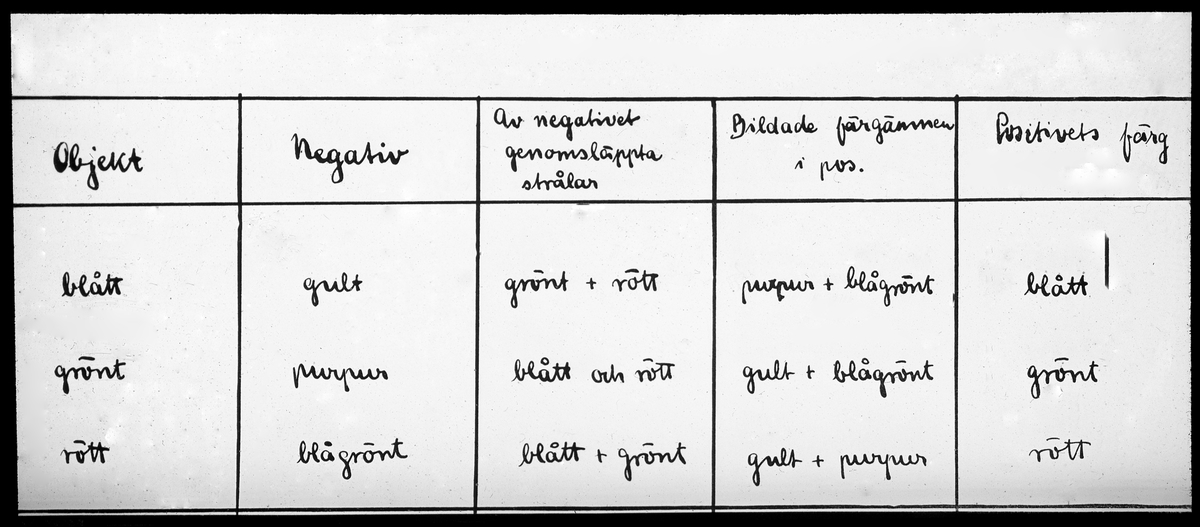 Objekt
Negativ
Av negativet
genomsläppta
strålar
Bildade färgämnen
i pos.
Positivets färg
blått
gult
grönt + rött
purpur + blågrönt
blått
grönt
purpur
blått och rött
gult + blågrönt
grönt
rött
blågrönt
blått + grönt
gult + purpur
rött